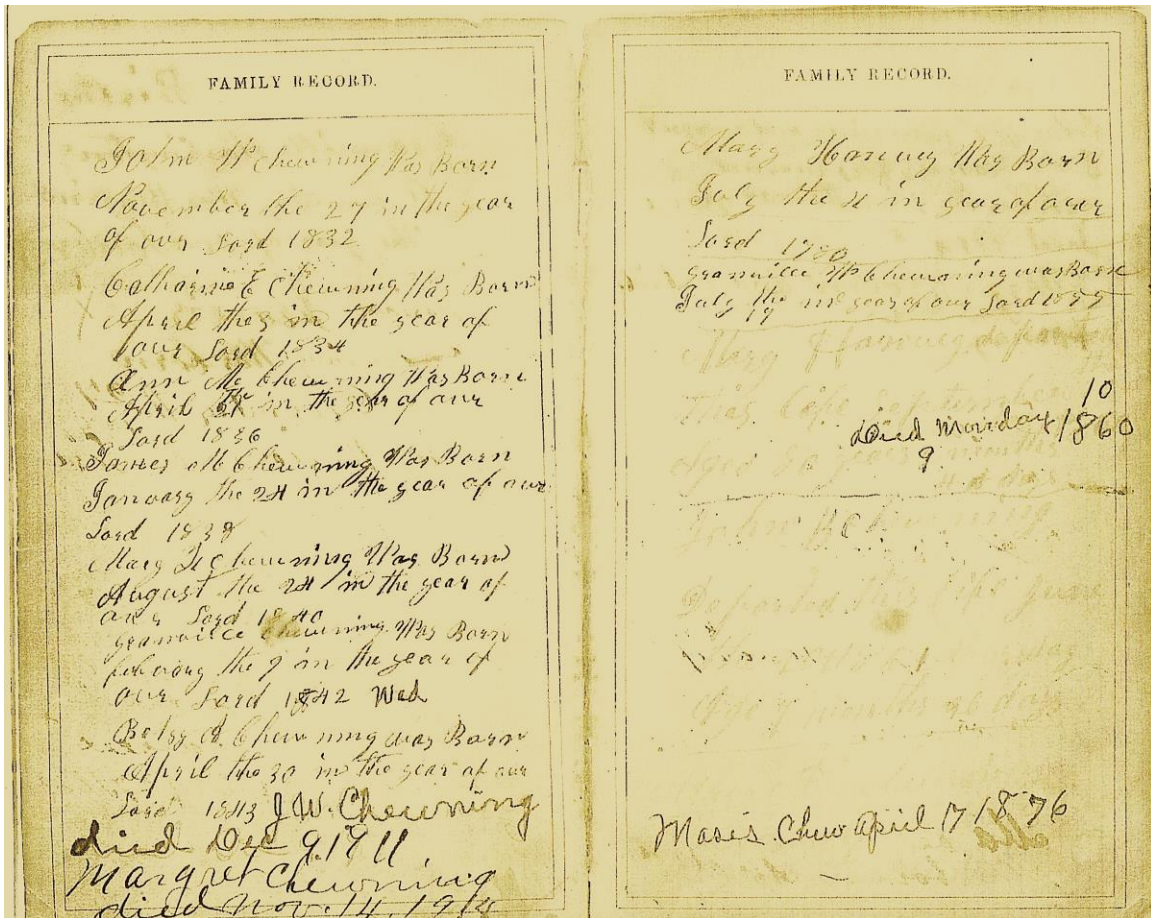 FAMILY RECORD.
John W Chewning Was Born
November the 27 in the year
of our Lord 1832
Catharine E Chewning Was Born
April the 3 in the year of
our Lord 1834
Ann M Chewning Was Born
April in the year of our
Lord 1836
James M Chewning Was Born
January the 24 in the year of our
Lord 1838
Mary Chewning Was Born
August the 24 in the year of
our Lord 1840
granville Chewning Was Born
february the 9 in the year of
our Lord 1842 Wed
Betsy A Chewning was Born
April the 30 in the year of our
Lord 1843 J W. Chewning
died Dec 9, 1911
Margret Chewning
died Nov. 14, 1914
FAMILY RECORD.
Mary Haney Was Born
July the 4 in year of our
Lord 1780
granville W Chewning was Born
July the 17 in year of our Lord
Mary Haney departed
this life september 10
Died Monday 1860
9
Aged years months
days
John Chewning
Departed this life June
Age 7 months 26 days
Moses Chew april 17 1876